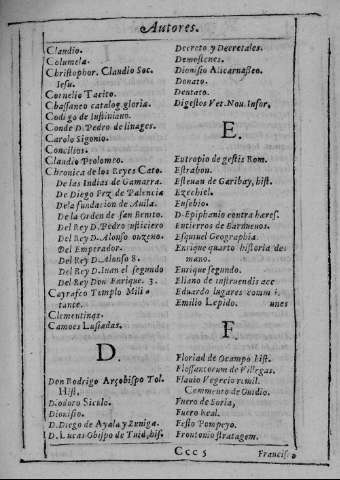 Autores.
Claudio.
Columela.
Christophor. Claudio Soc.
Iesu.
Cornelio Tacito.
Chassaneo catalog. gloriæ.
Codigo de Iustiniano.
Conde D. Pedro de linages.
Carolo Sigonio.
Concilios.
Claudio Ptolomeo.
Chronica de los Reyes Cato.
De las Indias de Gamarra.
De Diego Frz de Palencia
De la fundacion de Auila.
De la Orden de san Benito.
Del Rey D. Pedro justiciero
Del Rey D. Alonso onzeno.
Del Emperador.
Del Rey D. Alonso 8.
Del Rey D. Iuan el segundo
Del Rey Don Enrique 3.
Cayrasco Templo Mili-
tante.
Clementinas.
Camoes Lusiadas.
D.
Don Rodrigo Arçobispo Tol.
Hist.
Diodoro Siculo.
Dionisio.
D. Diego de Ayala y Zuniga.
D. Lucas Obispo de Tuid, his.
Decreto y Decretales.
Demostenes.
Dionisio Alicarnasseo.
Donato.
Deutato.
Digestos Vet. Nou. Infor,
E.
Eutropio de gestis Rom.
Estrabon.
Esteuan de Garibay, hist.
Ezechiel.
Eusebio.
D. Epiphanio contra hæres.
Entierros de
Esquiuel Geographia.
Enrique quarto historia de
mano.
Enrique segundo.
Eliano de instruendis ace
Eduardo lugares comm
Emilio Lepido. unes
F.
Florian de Ocampo hist.
de Villegas.
Flauio Vegecio remil.
Commento de Guidio.
Fuero de Soria,
Fuero Real.
Festo Pompeyo.
Frontonio stratagem.
Ccc 5
Francisc